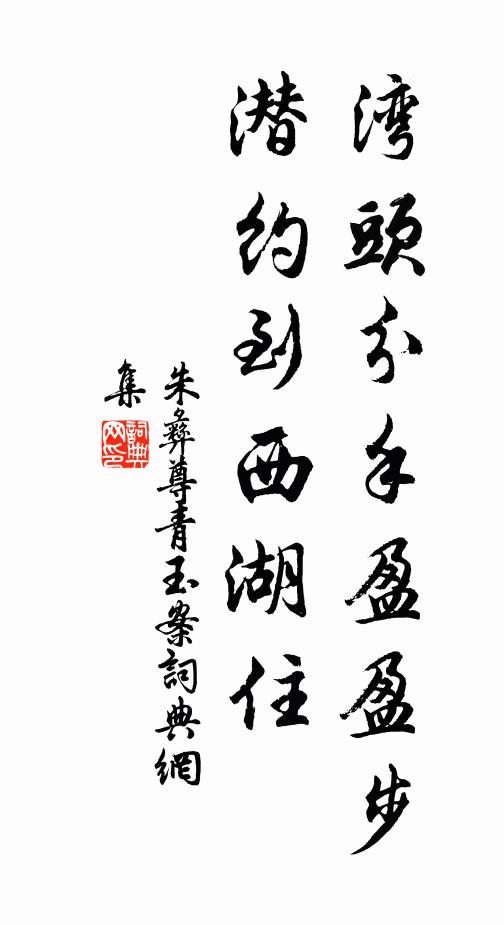 湾頭分手盈盈步
潜約到西湖住
朱彝尊青玉案詞典網
集
詞典网印